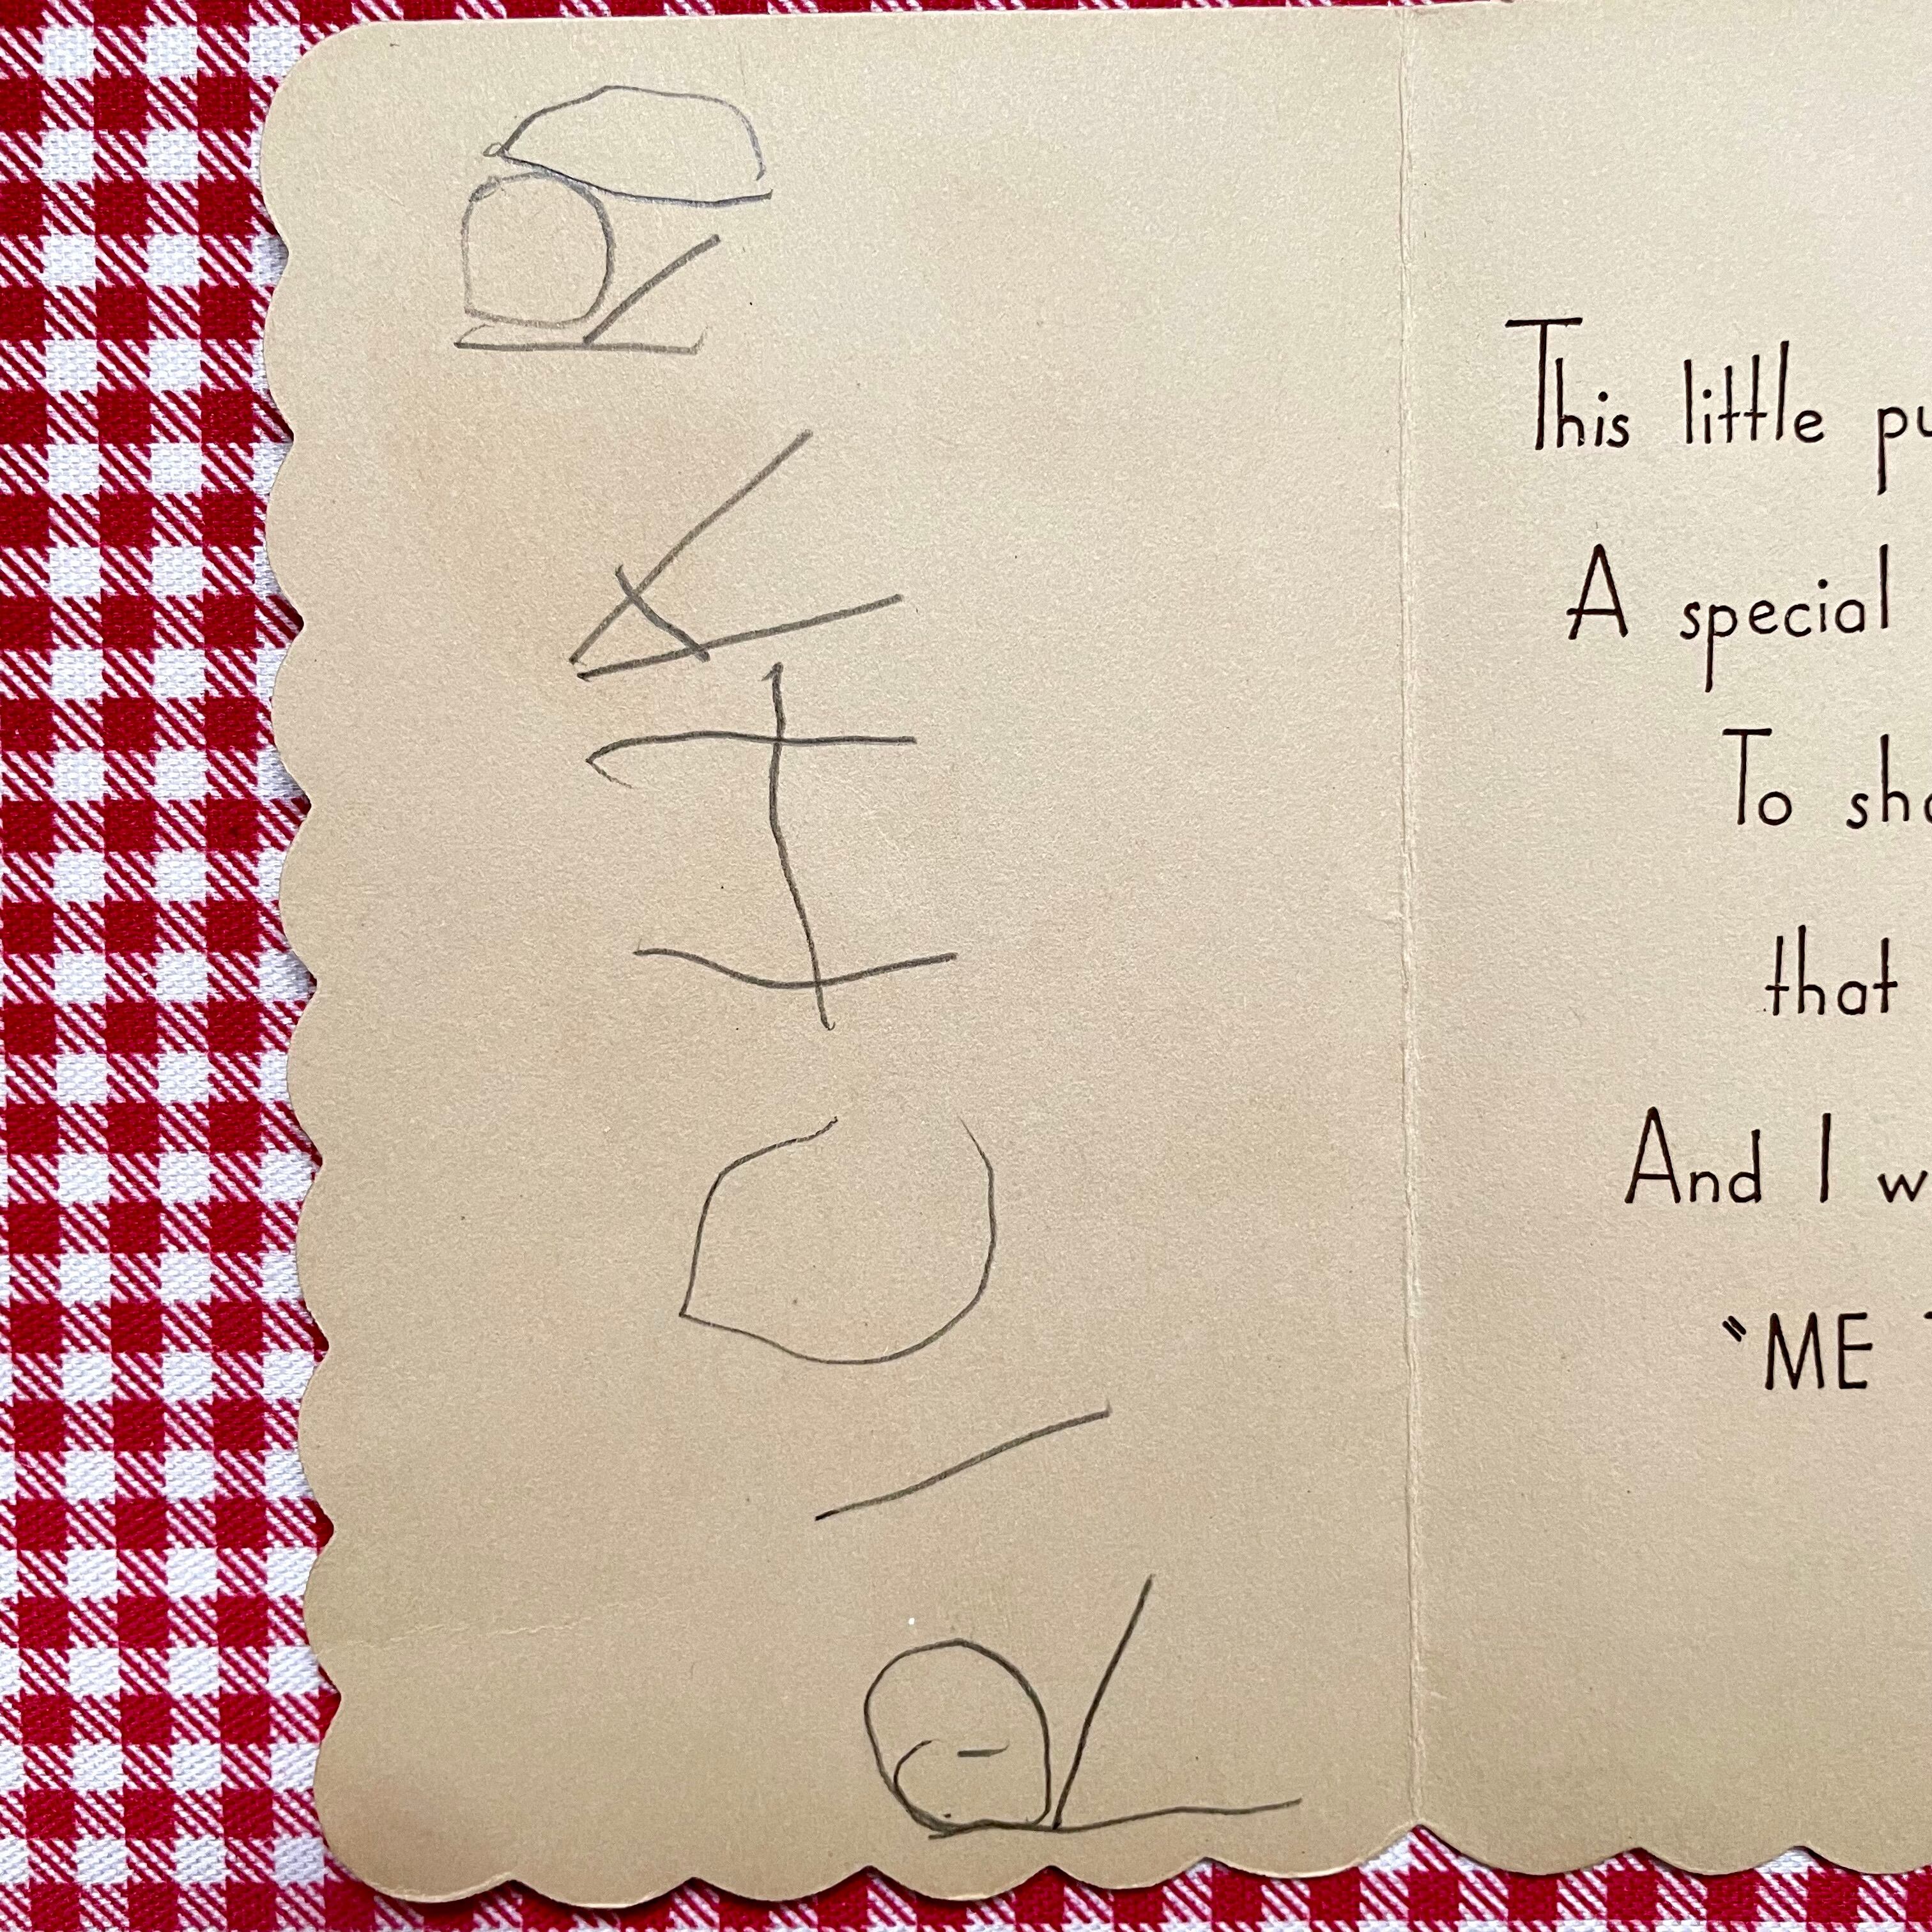 RICHARD
This little pu
A special
To sho
that
And I w
"ME